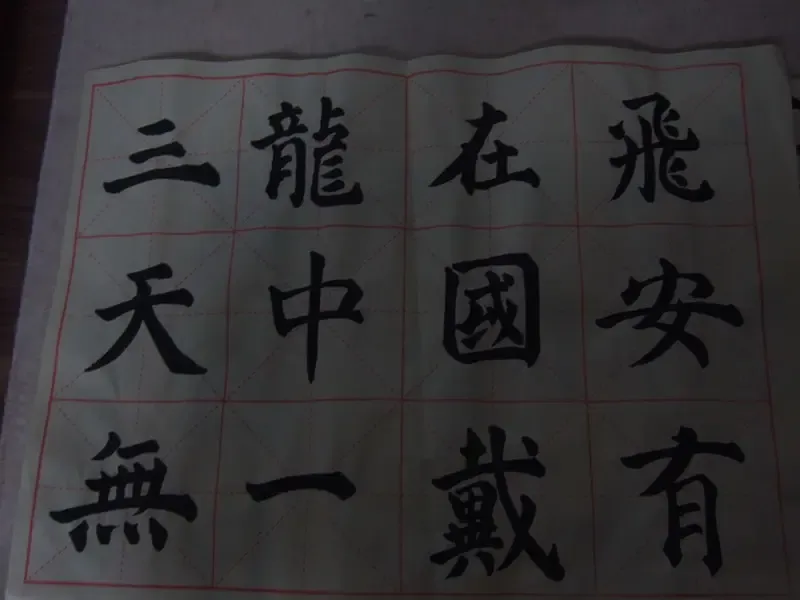 三龍在飛
天中國安
無一戴有